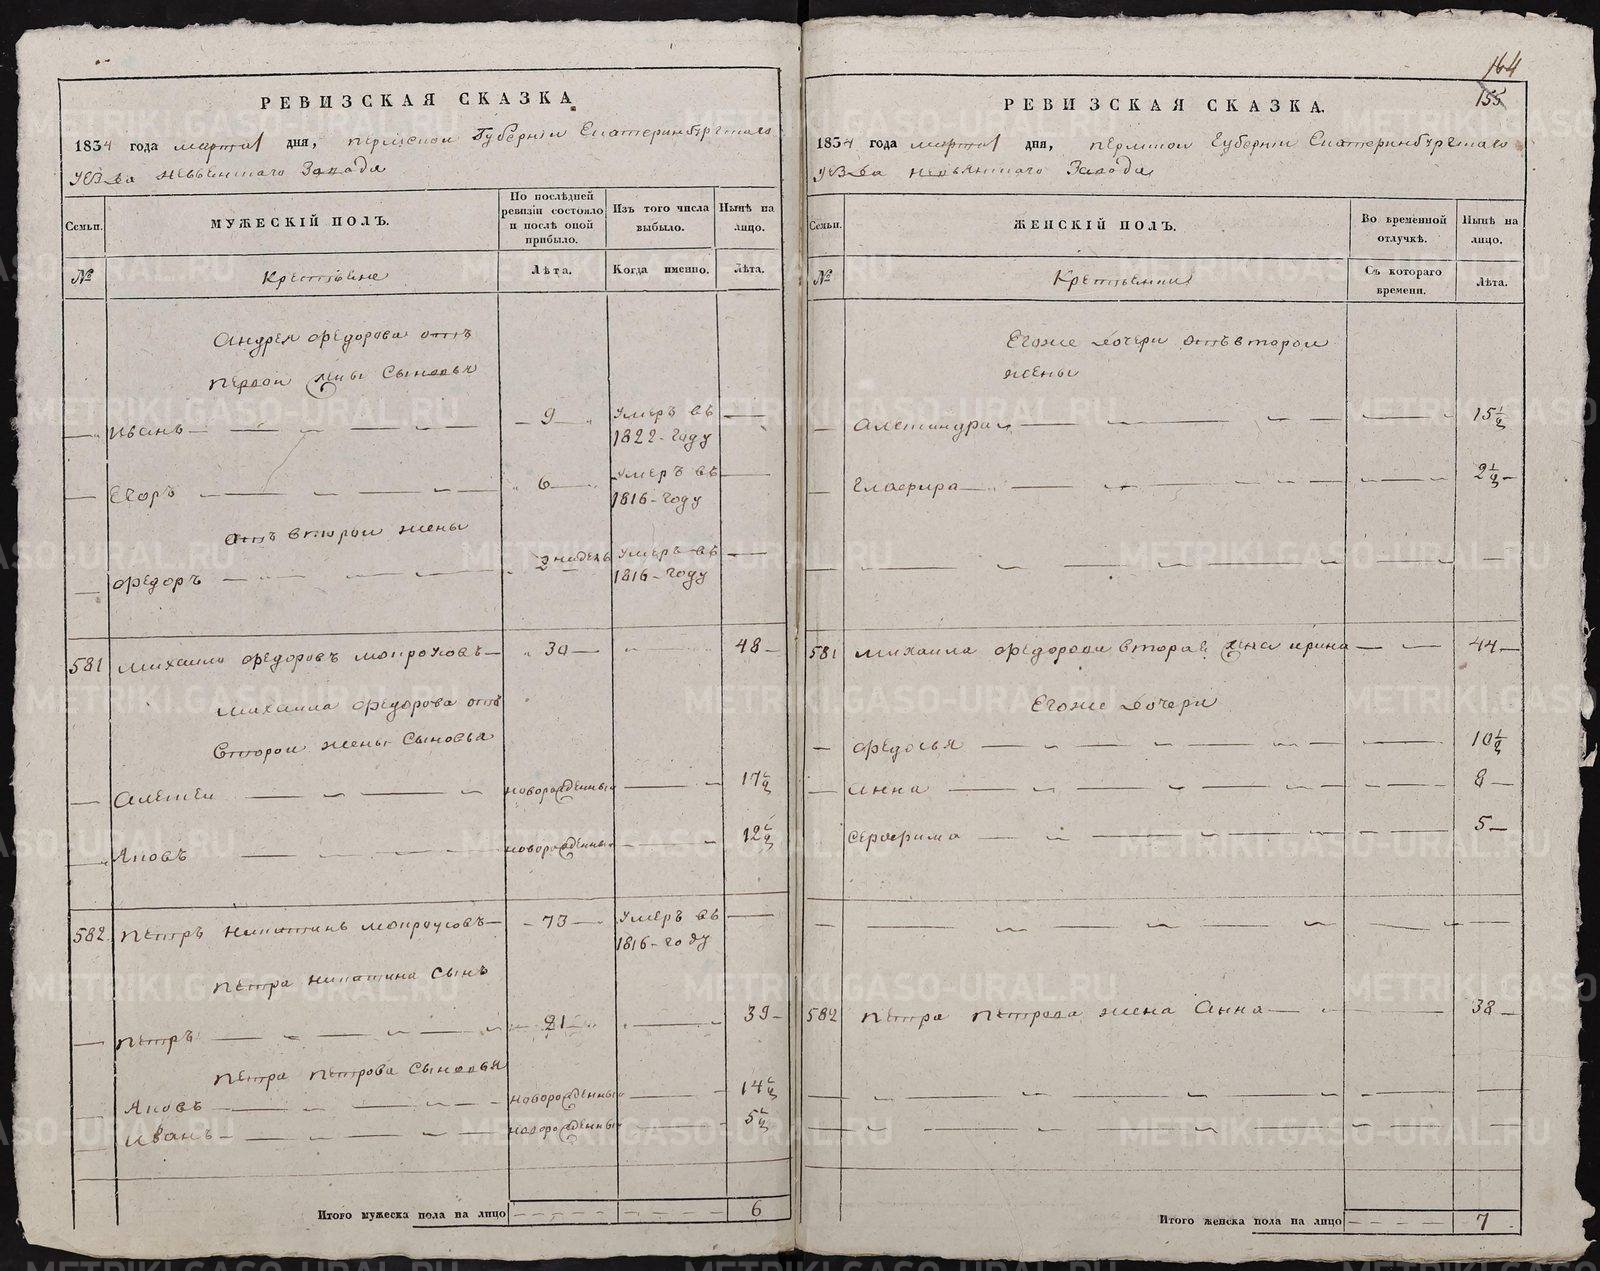 РЕВИЗСКАЯ СКАЗКА
1834 года марта 1 дня, Пермской Губернии Екатеринбургскаго
уезда Невьянского Завода
Семьи.
МУЖЕСКІЙ ПОЛЪ.
По послѣдней ревизіи состояло и послѣ оной прибыло.
Изъ того числа выбыло.
Нынѣ на лицо.
№
Крестьяне
Лѣта.
Когда именно.
Лѣта.
Андрея Федорова отъ
первой жены сыновья
Иванъ 9 умеръ въ 1822 году
Егоръ 6 умеръ въ 1816 году
отъ второй жены
Федоръ 2 недель умеръ въ 1816 году
581 Михаило Федоровъ Мокроусовъ 30 48
Михаила Федорова отъ
второй жены сыновья
Алексей новорожденный 17½
Яковъ новорожденный 12½
582 Петръ Никитинъ Мокроусовъ 73 умеръ въ 1816 году
Петра Никитина сынъ
Петръ 21 39
Петра Петрова сыновья
Яковъ новорожденный 14½
Иванъ новорожденный 5½
Итого мужеска пола на лицо 6
164
155
РЕВИЗСКАЯ СКАЗКА.
1834 года марта 1 дня, Пермской Губернии Екатеринбургскаго
уезда Невьянского Завода
Семьи.
ЖЕНСКІЙ ПОЛЪ.
Во временной отлучкѣ.
Нынѣ на лицо.
№
Крестьянки
Съ котораго времени.
Лѣта.
Егоже дочери отъ второй
жены
Александра 15½
Глафира 2½
581 Михаила Федорова вторая жена Ирина 44
Егоже дочери
Федосья 10½
Анна 8
Серафима 5
582 Петра Петрова жена Анна 38
Итого женска пола на лицо 7
METRIKI.GASO-URAL.RU